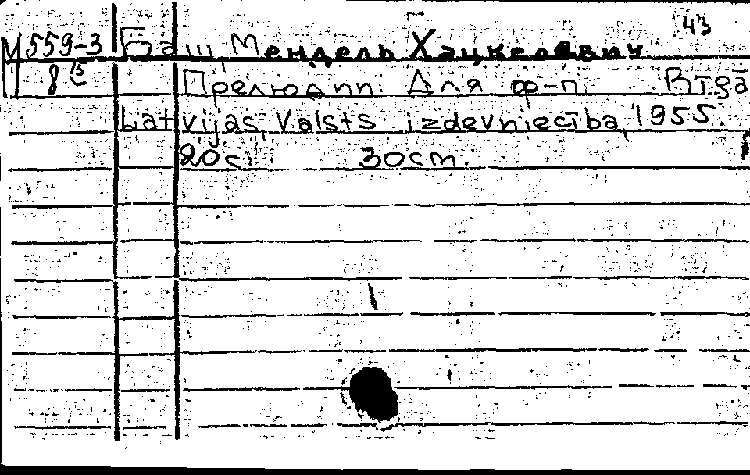 43
М 559-3 Баш, Мендель Хацкелевич
8 15 Прелюдии. Для ф-п. Rīga
Latvijas Valsts izdevniecība, 1955.
20с. 30cm.